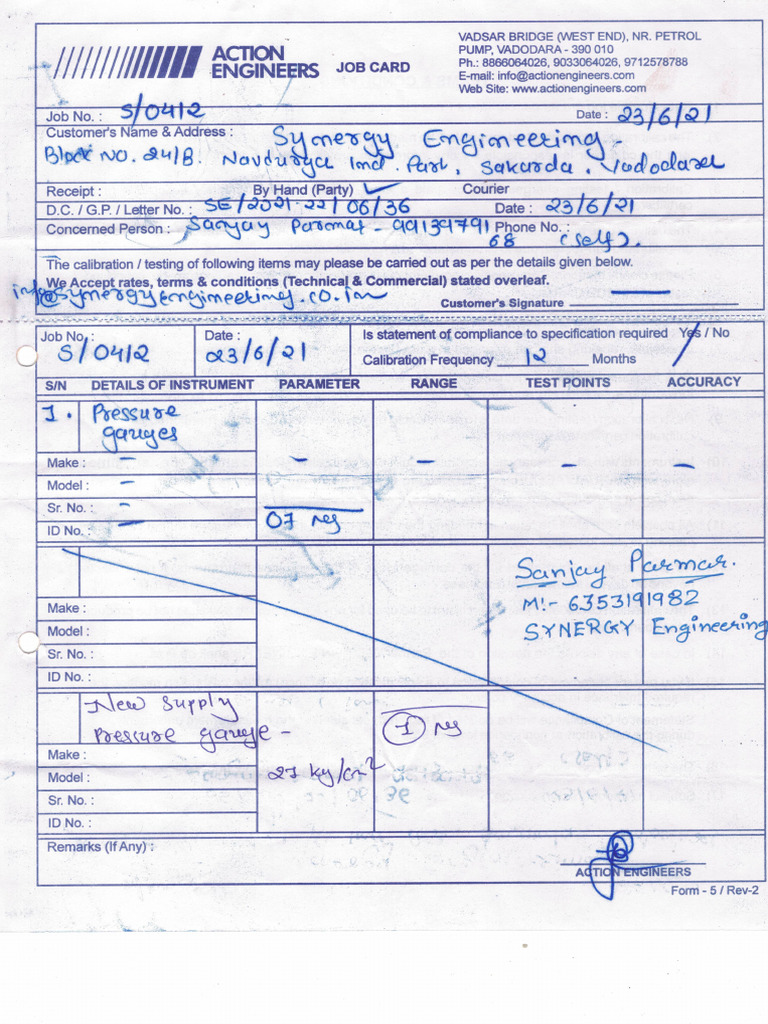 ACTION ENGINEERS JOB CARD
VADSAR BRIDGE (WEST END), NR. PETROL
PUMP, VADODARA - 390 010
Ph.: 8866064026, 9033064026, 9712578788
E-mail: info@actionengineers.com
Web Site: www.actionengineers.com
Job No. : S/0412 Date : 23/6/21
Customer's Name & Address : Synergy Engineering.
Block No. 241B. Navdurga Ind. Park, Sakarda, Vadodara
Receipt : By Hand (Party) ✓ Courier
D.C. / G.P. / Letter No. : SE/2021-22/06/36 Date : 23/6/21
Concerned Person : Sanjay Parmar - 9913979168 Phone No. : (self).
The calibration / testing of following items may be carried out as per the details given below.
We Accept rates, terms & conditions (Technical & Commercial) stated overleaf.
info@synergyengineering.co.in Customer's Signature
Job No. : S/0412 Date : 23/6/21 Is statement of compliance to specification required Yes / No
Calibration Frequency 12 Months
S/N DETAILS OF INSTRUMENT PARAMETER RANGE TEST POINTS ACCURACY
1. Pressure
gauges
Make : - - - - -
Model : -
Sr. No. : -
ID No. : - 07 nos
Sanjay Parmar.
M:- 6353191982
SYNERGY Engineering
Make :
Model :
Sr. No. :
ID No. :
New Supply
Pressure gauge - 1 no
Make :
Model : 21 kg/cm2
Sr. No. :
ID No. :
Remarks (If Any) :
ACTION ENGINEERS
Form - 5 / Rev-2